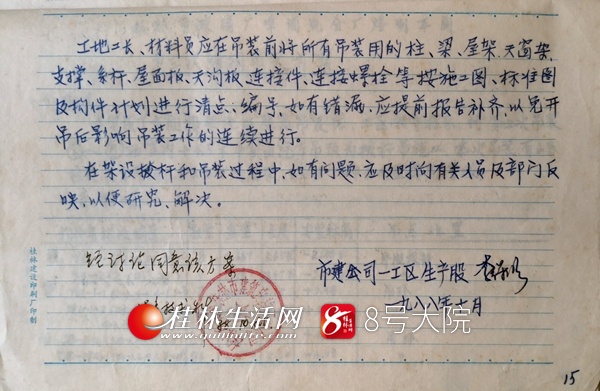 工地工长、材料员应在吊装前将所有吊装用的柱、梁、屋架、天窗架、
支撑、系杆、屋面板、天沟板、连接件、连接螺栓等按施工图、标准图
及构件计划进行清点、编号,如有错漏,应提前报告补齐,以免开
吊后影响吊装工作的连续进行。
在架设拔杆和吊装过程中,如有问题,应及时向有关人员及部门反
映,以便研究、解决。
经讨论同意该方案
市建公司一工区生产股
一九八八年七月
桂林建设印刷厂印制
桂林生活网
www.guilinlife.com
8号大院
15